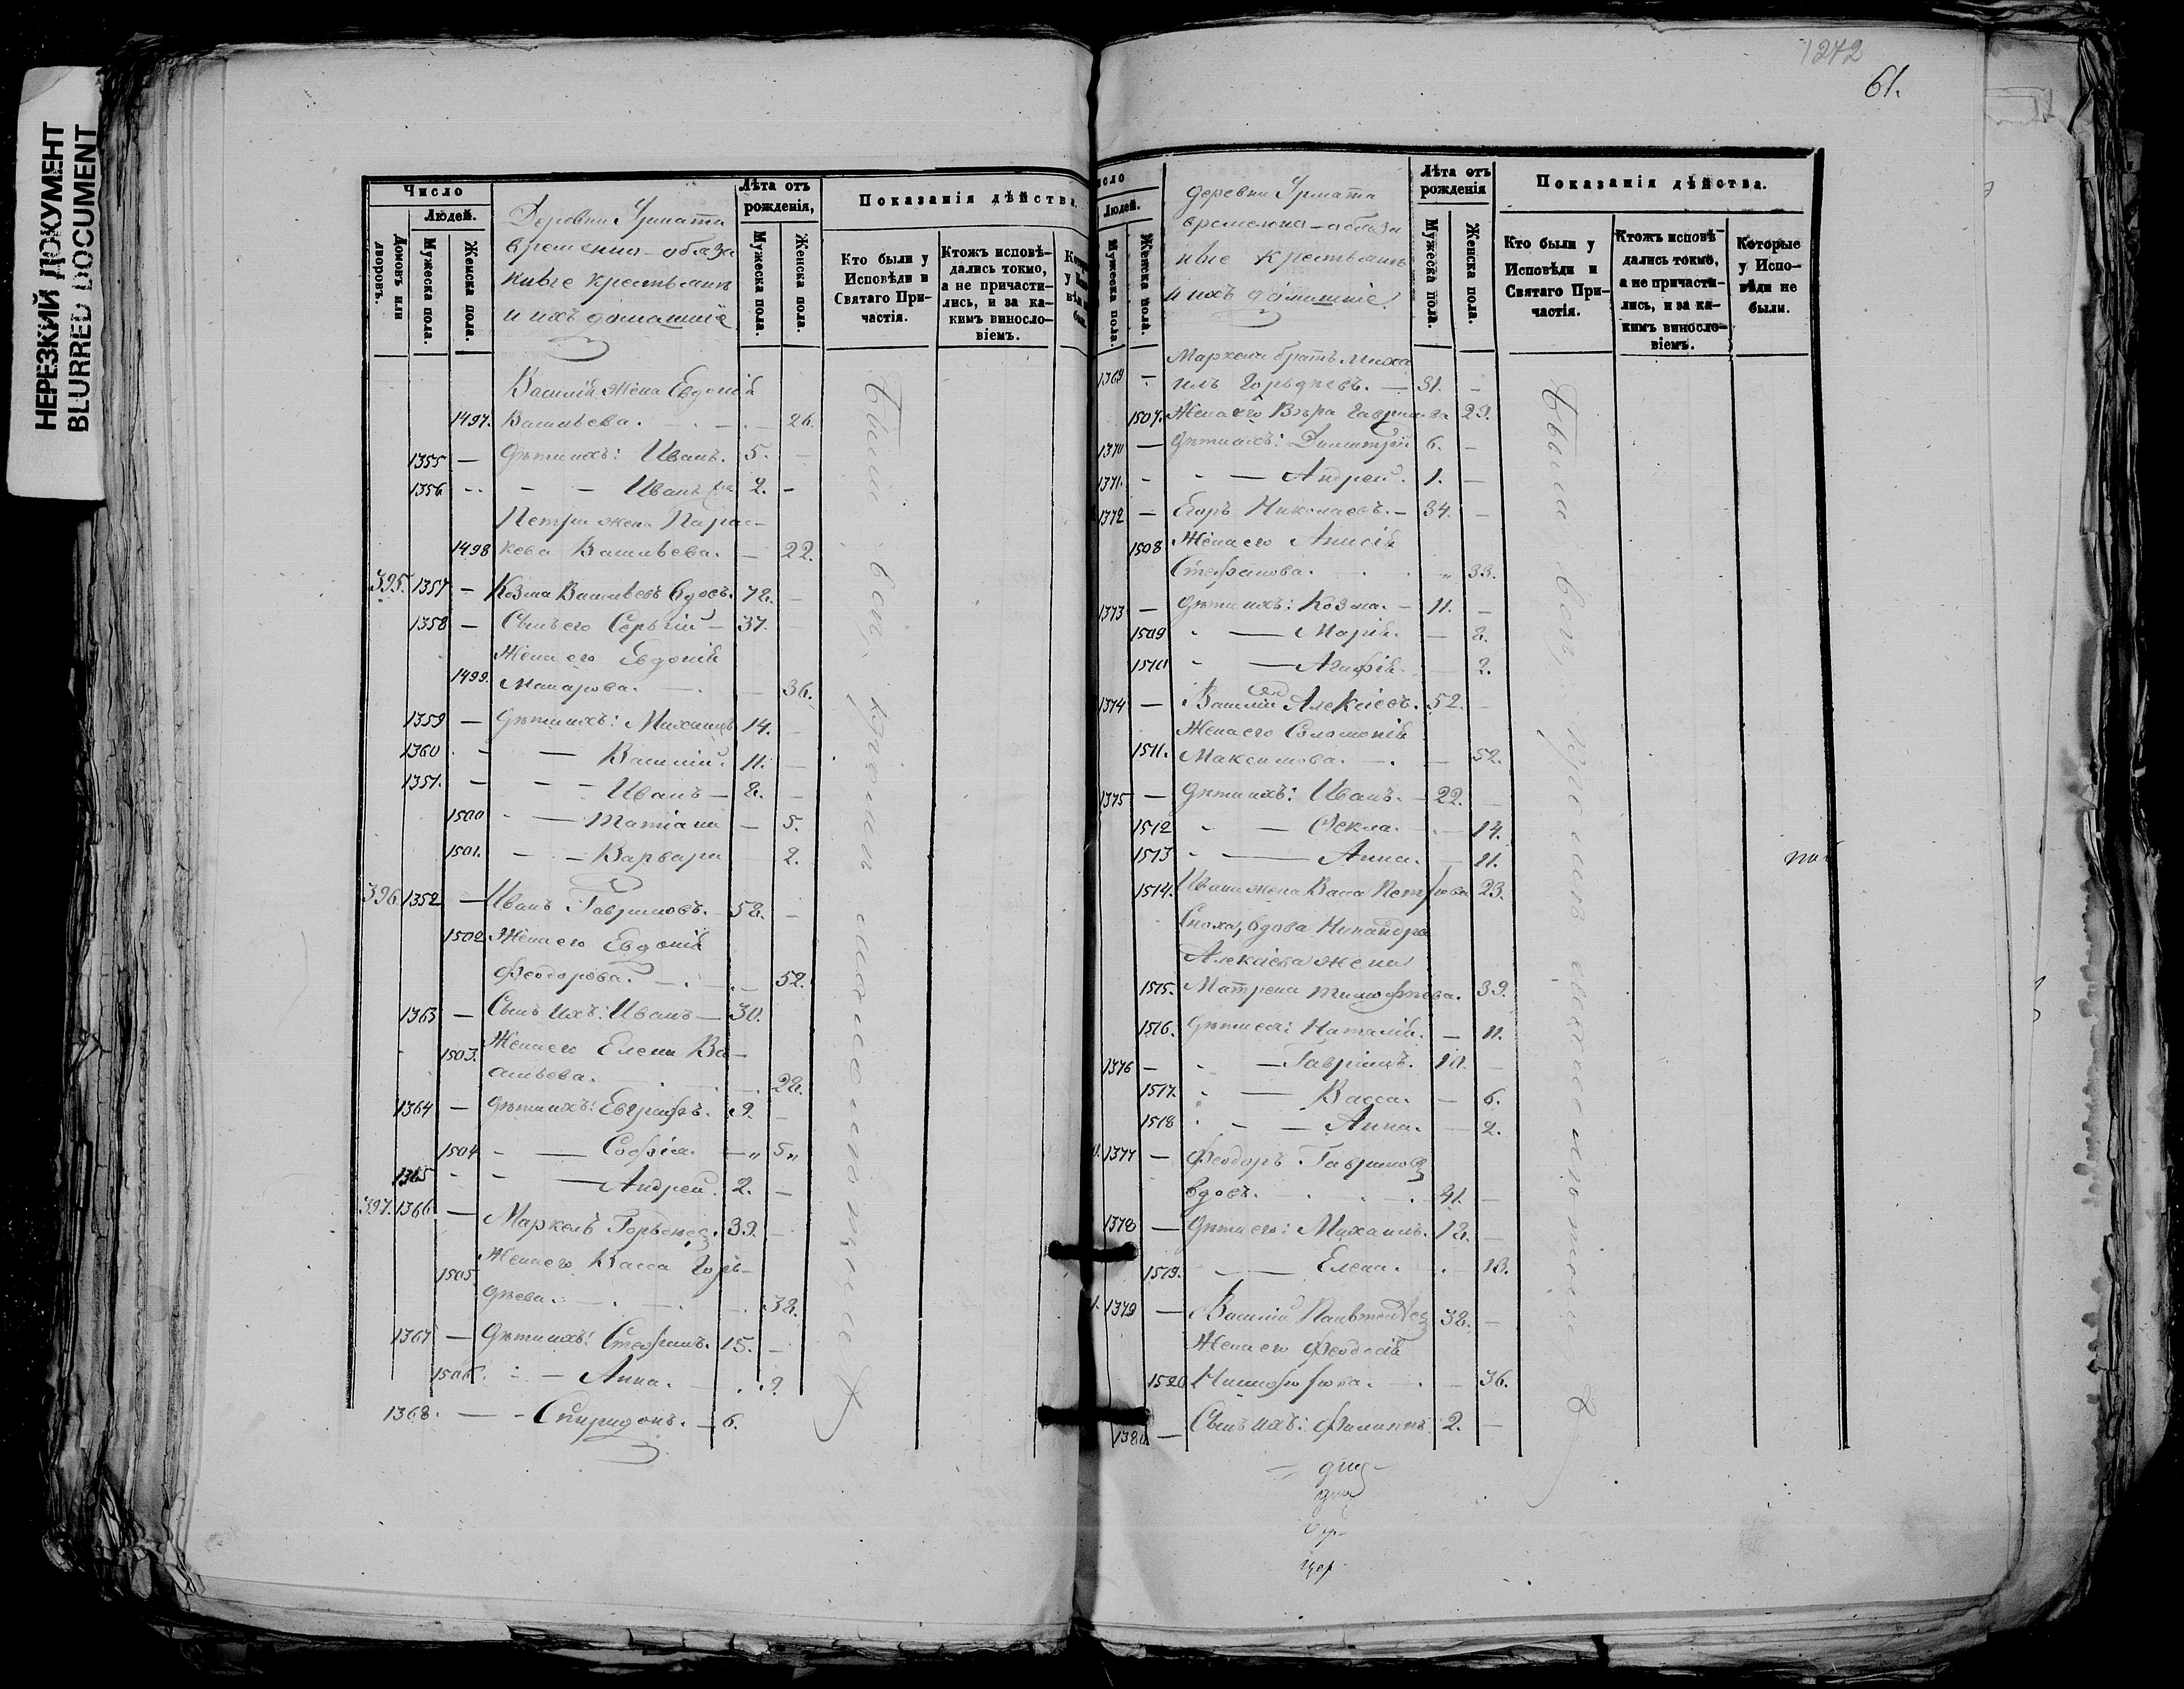 НЕРЕЗКИЙ ДОКУМЕНТ
BLURRED DOCUMENT
Число
Людей.
Домовъ или дворовъ.
Мужеска пола.
Женска пола.
Деревни Урмата
временно-обяза
нные крестьяне
и ихъ домашніе
Лѣта отъ
рожденія,
Мужеска пола.
Женска пола.
Показанія дѣйства.
Кто были у
Исповѣди и
Святаго При-
частія.
Ктожъ исповѣ-
дались токмо,
а не причасти-
лись, и за ка-
кимъ винosло-
віемъ.
Василія жена Евдокія
1497. Васильева. 26.
1355 — Дѣти ихъ: Иванъ. 5. —
1356 — — Иванъ 2. —
Петра жена Парас-
1498 кева Васильева. — 22.
395. 1357 — Козма Васильевъ вдовъ. 72. —
1358 — Сынъ его Сергій — 37.
Жена его Евдокія
1499. Макарова. — 36.
1359 — Дѣти ихъ: Михаилъ 14.
1360 — Василій. 11. —
1351. — — Иванъ — 2. —
1500 — Татіана — 5.
1501. — — Варвара 2.
396. 1352 — Иванъ Гавриловъ. 58. —
1502 Жена его Евдокія
Феодорова. — 52.
1363 — Сынъ ихъ: Иванъ — 30.
1503. Жена его Елена Ва-
сильева. 28.
1364 — Дѣти ихъ: Евграфъ. 9. —
1504 — — Софія. — 5
1365 — — Андрей. 2. —
397. 1366 — Маркелъ Гордѣевъ. 39. —
1505. Жена его Васса Горь-
дѣева. — 38.
1367 — Дѣти ихъ: Стефанъ. 15. —
1506. — Анна. 9.
1368. — — Спиридонъ. — 6.
Были вси, кромѣ малолѣтнихъ
1242
61.
Людей.
Мужеска пола.
Женска пола.
деревни Урмата
временно-обяза
нные крестьяне
и ихъ домашніе
Лѣта отъ
рожденія
Мужеска пола.
Женска пола.
Показанія дѣйства.
Кто были у
Исповѣди и
Святаго При-
частія.
Ктожъ исповѣ-
дались токмо,
а не причасти-
лись, и за ка-
кимъ винoсло-
віемъ.
Которые
у Испо-
вѣди не
были.
Маркела братъ Миха
1369 — илъ Гордѣевъ. — 31. —
1507. Жена его Вѣра Гаврилова 29.
1370 — Дѣти ихъ: Димитрій 6. —
1371. — — Андрей. 1. —
1372 — Егоръ Николаевъ. — 34. —
1508 Жена его Анисія
Стефанова. 33.
1373 — Дѣти ихъ: Козма. — 11. —
1509 — Марія. — 8.
1510 — Агафія. 2.
1374 — Василій Алексіевъ. 52. —
Жена его Соломонія
1511. Максимова. — 52.
1375 — Дѣти ихъ: Иванъ. — 22. —
1512 — Фекла. 14.
1513 — Анна. — 11.
1514. Ивана жена Васса Петрова 23.
Сноха, вдова Никандра
Алексіева жена
1515. Матрена Тимофѣева. 39.
1516. Дѣти ея: Наталія. — 11.
1376 — — Гавріилъ. 10. —
1517. — Васса. — 6.
1518 — — Анна. — 2.
1377 — Феодоръ Гавриловъ
вдовъ. 41. —
1378 — Дѣти его: Михаилъ. 18. —
1519. — Елена. 13.
1379 — Василій Пантелѣевъ 38. —
Жена его Феодосія
1520 Никифорова. — 36.
1380 — Сынъ ихъ: Филиппъ 2. —
Были вси, кромѣ малолѣтнихъ